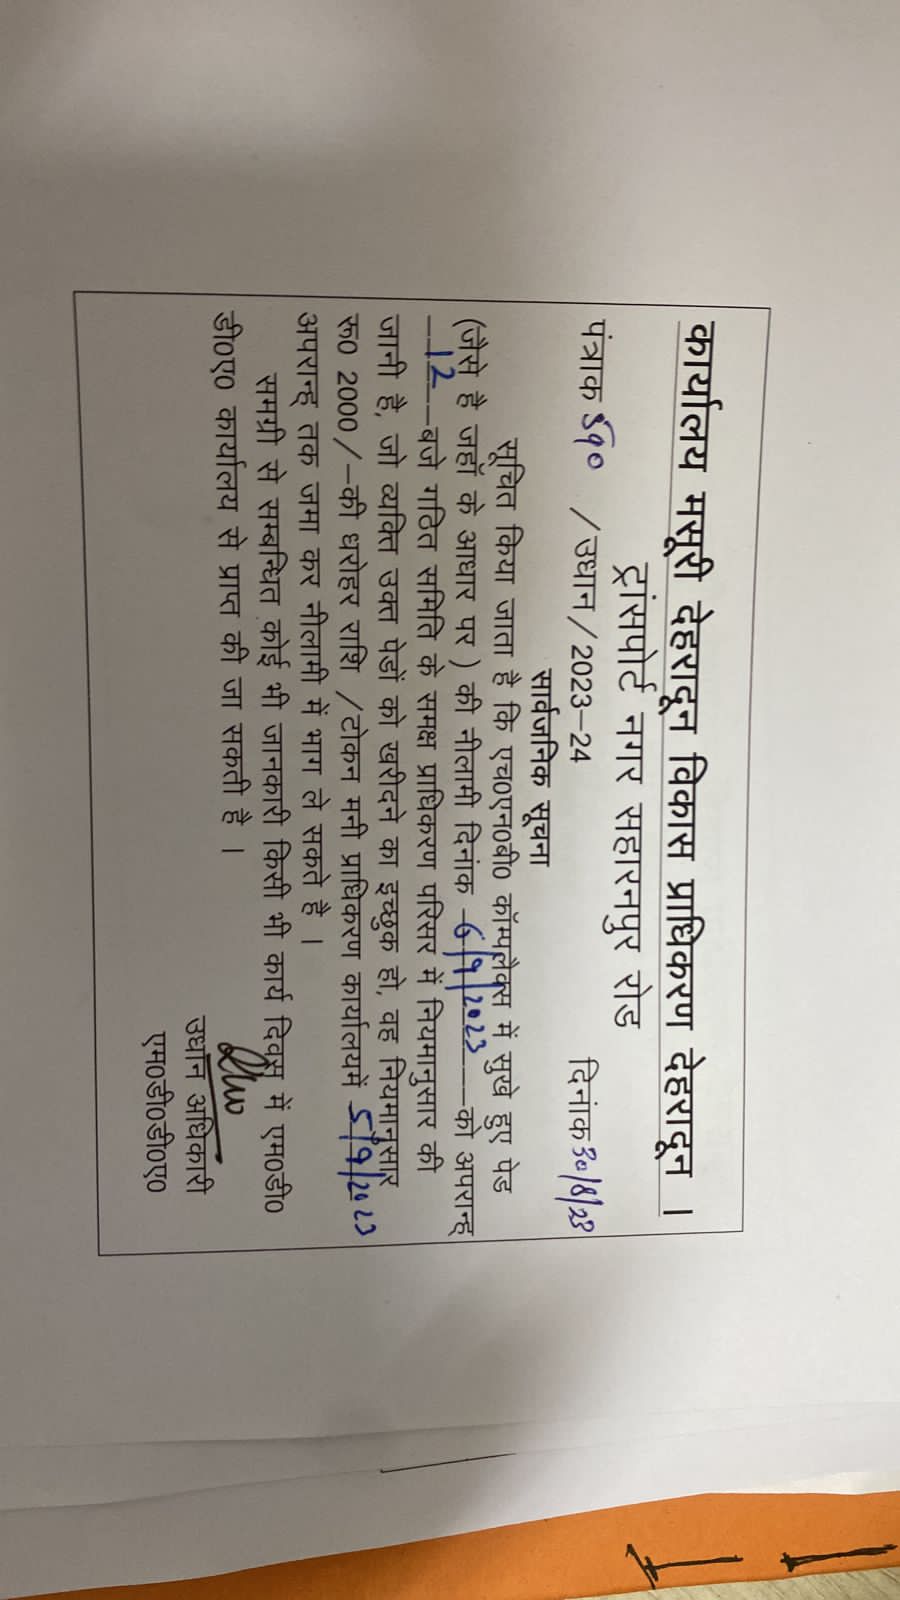 कार्यालय मसूरी देहरादून विकास प्राधिकरण देहरादून ।
ट्रांसपोर्ट नगर सहारनपुर रोड
पंत्राक ५९० /उधान/2023–24 दिनांक 30/8/23
सार्वजनिक सूचना
सूचित किया जाता है कि एच0एन0बी0 कॉम्पलैक्स में सुखे हुए पेड
(जैसे है जहॉ के आधार पर ) की नीलामी दिनांक 6/9/2023 को अपरान्ह्
12 बजे गठित समिति के समक्ष प्राधिकरण परिसर में नियमानुसार की
जानी है, जो व्यक्ति उक्त पेडों को खरीदने का इच्छुक हो, वह नियमानुसार
रू0 2000/–की धरोहर राशि /टोकन मनी प्राधिकरण कार्यालयमें 5/9/2023
अपरान्ह् तक जमा कर नीलामी में भाग ले सकते है ।
समग्री से सम्बन्धित कोई भी जानकारी किसी भी कार्य दिवस में एम0डी0
डी0ए0 कार्यालय से प्राप्त की जा सकती है ।
उधान अधिकारी
एम0डी0डी0ए0